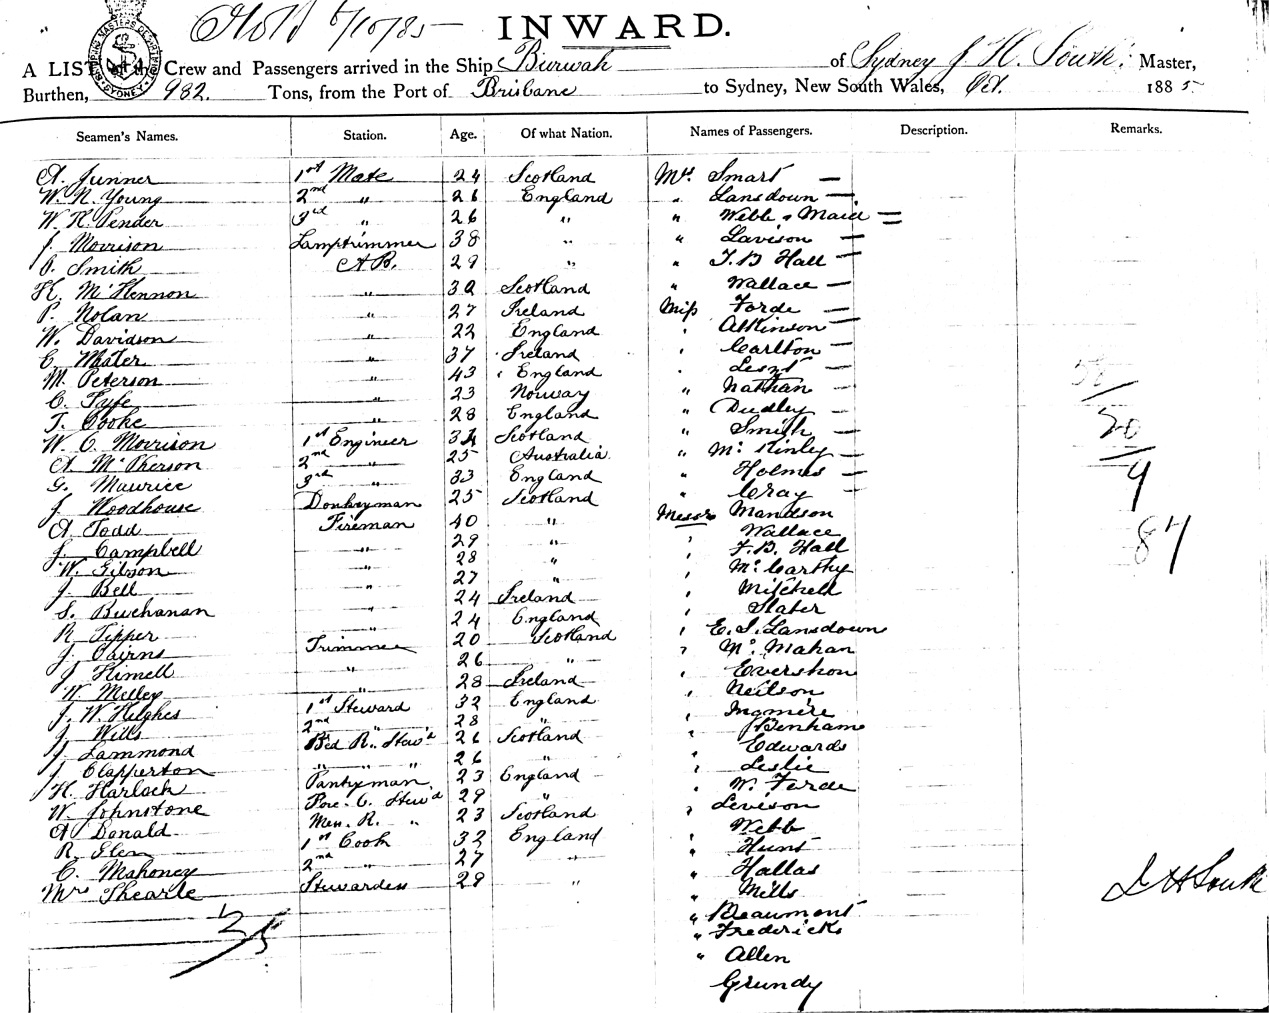 6/10/85
INWARD.
SHIPPING MASTERS DEPARTMENT SYDNEY
A LIST of the Crew and Passengers arrived in the Ship Burwah of Sydney J. H. South, Master,
Burthen, 982. Tons, from the Port of Brisbane to Sydney, New South Wales, Oct. 1885
Seamen's Names. Station. Age. Of what Nation. Names of Passengers. Description. Remarks.
A. Junner 1st Mate 24 Scotland Mrs Smart —
W. N. Young 2nd " 26 England " Lansdown —
W. R. Pender 3rd " 26 " " Webb & Maid =
J. Morrison Lamptrimmer 38 " " Lavison —
P. Smith A B. 29 " " T. B Hall —
H. McKennon " 32 Scotland " Wallace —
P. Nolan " 27 Ireland Miss Forde —
W. Davidson " 22 England " Atkinson —
C. Mater " 37 Ireland " Carlton —
M. Peterson " 43 England " Leszt —
C. Fyfe " 23 Norway " Nathan —
T. Cooke " 28 England " Dudley —
W. C. Morrison 1st Engineer 34 Scotland " Smith —
A. McPherson 2nd " 25 Australia " McKinley —
G. Maurice 3rd " 33 England " Holmes —
J. Woodhouse Donkeyman 25 Scotland " Cray —
A. Todd Fireman 40 " Messrs Mandson
J. Campbell " 29 " " Wallace
W. Gibson " 28 " " F. B. Hall
J. Bell " 27 " " McCarthy
S. Buchanan " 24 Ireland " Mitchell
R. Tipper " 24 England " Slater
J. Cairns Trimmer 20 Scotland " E. S. Lansdown
J. Kimell " 26 " " McMahan
W. Melley " 28 Ireland " Evershon
J. W. Hughes 1st Steward 32 England " Neilson
J. Wills 2nd " 28 " " Ingmere
J. Lammond Bed R. Stew'd 26 Scotland " J Benham
J. Clapperton " " " 26 " " Edwards
H. Harloch Pantryman 23 England " Leslie
W. Johnstone Fore. C. Stew'd 29 " " W. Forde
A Donald Mess. R. " 23 Scotland " Levison
R. Glen 1st Cook 32 England " Webb
C. Mahoney 2nd " 27 " " Hunt
Mrs Shearle Stewardess 28 " " Hallas
" Mills
" Beaumont
" Fredericks
" Allen
Grundy
35
58
20
9
87
J H South